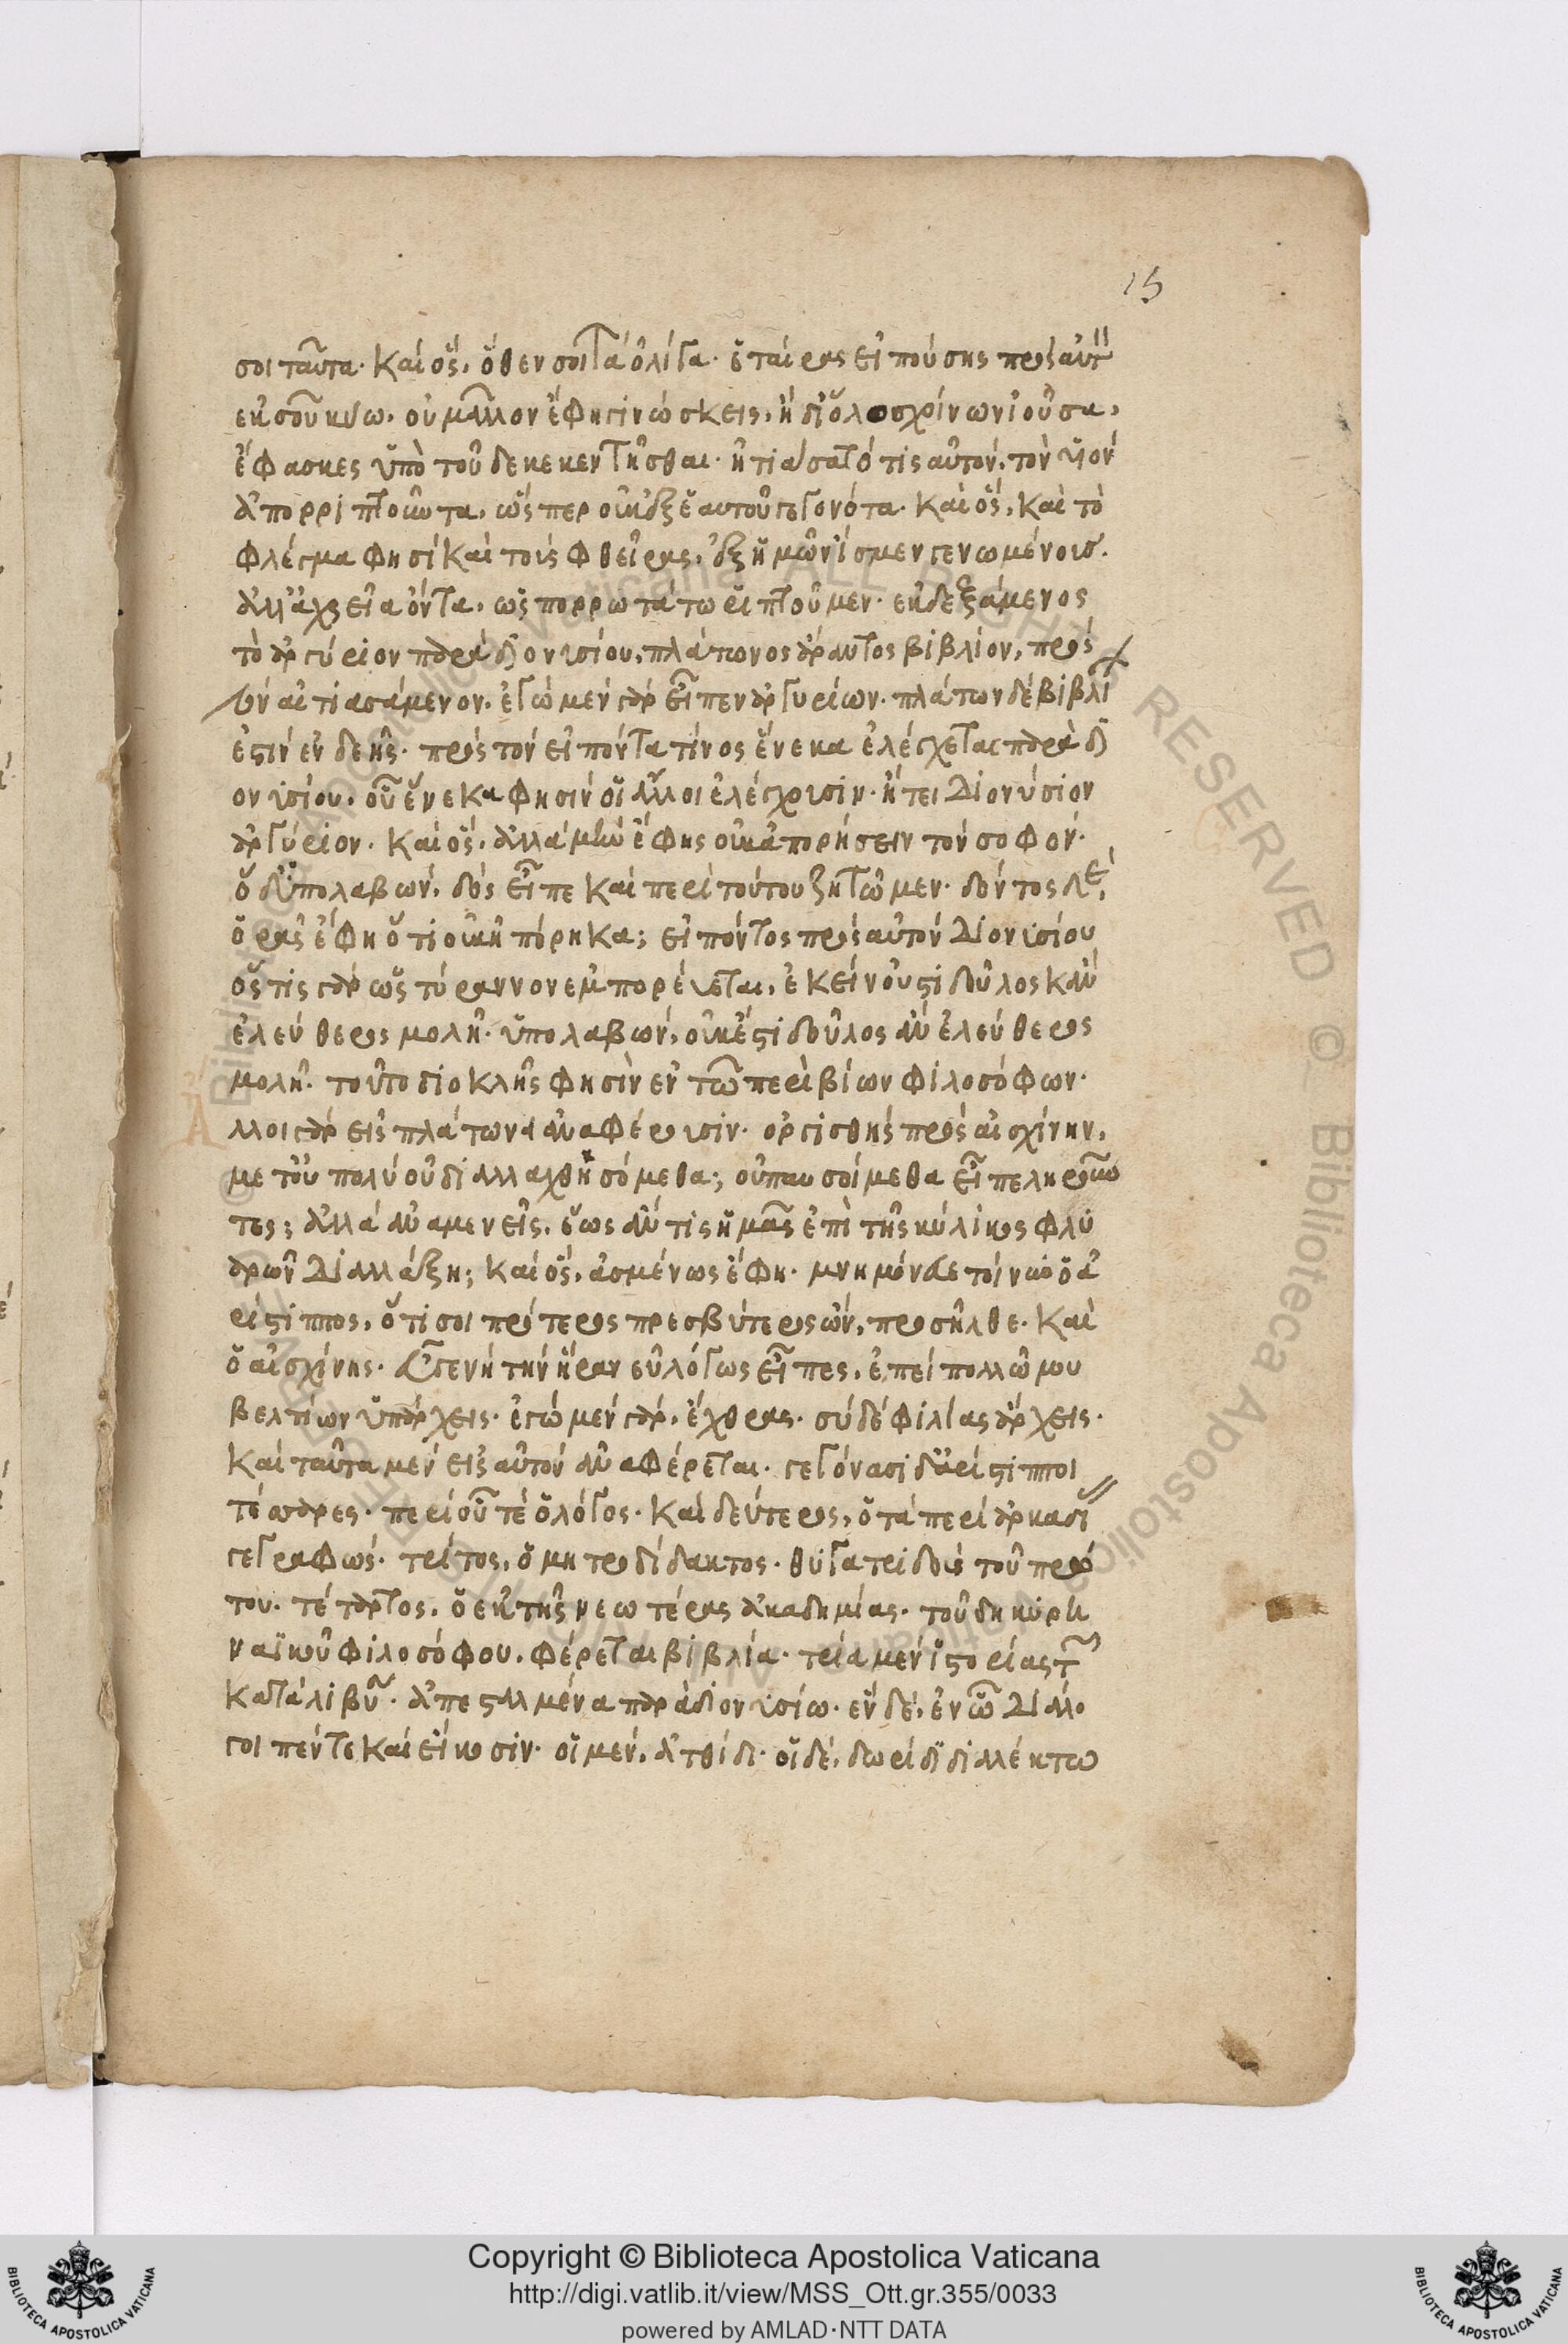 15
σοι ταῦτα. Καὶ ὅς, ὅθεν σοι τὰ ὀλίγα. ἑταίρας εἰπούσης πρὸς αὐτ
ἐκ σοῦ κυῶ, οὐ μᾶλλον ἔφη γινώσκεις, ἢ δι' ὅλο σχίνων ἰοῦσα,
ἔφασκες ὑπὸ τοῦδε κεκεντῆσθαι. ἠτιάσατό τις αὐτὸν, τὸν υἱὸν
ἀπορριπτοῦντα, ὥσπερ οὐκ ἐξ ἑαυτοῦ γεγονότα. Καὶ ὅς, καὶ τὸ
φλέγμα φησὶ καὶ τοὺς φθεῖρας, ἐξ ἡμῶν ἴσμεν γενωμένοις.
ἀλλ' ἀχρεῖα ὄντα, ὡς πορρωτάτω ῥιπτοῦμεν. ἐκδεξάμενος
τὸ ἀργύριον παρὰ Διονισίου, πλάτωνος ἄραντος βιβλίον, πρὸς
τὸν αἰτιασάμενον, ἐγὼ μὲν γὰρ εἶπεν ἀργυρίων. πλάτων δὲ βιβλί
ἐστὶν ἐνδεής. πρὸς τὸν εἰπόντα τίνος ἕνεκα ἐλέγχεται παρὰ Δι
ονισίου, οὗ ἕνεκα φησὶν οἱ ἄλλοι ἐλέγχουσιν. ᾔτει Διονύσιον
ἀργύριον. Καὶ ὅς, ἀλλὰ μὴν ἔφης οὐκ ἀπορήσειν τὸν σοφόν.
ὁ δ' ὑπολαβὼν, δὸς εἶπε καὶ περὶ τούτου ζητῶμεν. δόντος δὲ,
ὁρᾶς ἔφη ὅτι οὐκ ἠπόρηκα; εἰπόντος πρὸς αὐτὸν Διονισίου
ὅστις γὰρ ὡς τύραννον ἐμπορεύεται, ἐκείνου στὶ δοῦλος κἂν
ἐλεύθερος μολῆ. ὑπολαβὼν, οὐκ ἔστι δοῦλος ἂν ἐλεύθερος
μολῆ. τοῦτο διοκλῆς φησὶν ἐν τῶ περὶ βίων φιλοσόφων.
λλοι γὰρ εἰς πλάτωνα ἀναφέρουσιν. ὀργισθεὶς πρὸς αἰσχίνην,
μετ' οὐ πολὺ οὐ διαλλαχθησόμεθα; οὐ παυσοίμεθα εἶπε ληροῦν
τες; ἀλλὰ ἀναμενεῖς, ἕως ἄν τις ἡμᾶς ἐπὶ τῆς κύλικος φλυ
αρῶν διαλλάξη; Καὶ ὅς, ἀσμένως ἔφη. μνημόνευε τοίνυν ὁ ἀ
ρίστιππος, ὅτι σοι πρότερος πρεσβύτερος ὢν, προσῆλθε. Καὶ
ὁ αἰσχίνης. εὖγε νὴ τὴν ἥραν εὐλόγως εἶπες, ἐπεὶ πολλῶ μου
βελτίων ὑπάρχεις. ἐγὼ μὲν γὰρ, ἔχθρας. σὺ δὲ φιλίας ἄρχεις.
Καὶ ταῦτα μὲν εἰς αὐτὸν ἀναφέρεται. γεγόνασι δ' ἀρίστιπποι
τέσσαρες. περὶ οὗ τε ὁ λόγος. Καὶ δεύτερος, ὁ τὰ περὶ ἀρκαδί
γεγραφώς. τρίτος, ὁ μητροδίδακτος. θυγατριδοῦς τοῦ πρώ
του. τέταρτος, ὁ ἐκ τῆς νεωτέρας ἀκαδημίας. τοῦ δὴ κυρη
ναϊκοῦ φιλοσόφου, φέρεται βιβλία. τρία μὲν ἱστορίας τῶν
κατὰ λιβύην. ἀπεσταλμένα παρὰ διονισίω. ἓν δὲ, ἐν ᾧ διάλο
γοι πέντε καὶ εἴκοσιν. οἱ μὲν, ἀτθίδι. οἱ δὲ, δωρίδι διαλέκτω
Copyright © Biblioteca Apostolica Vaticana
http://digi.vatlib.it/view/MSS_Ott.gr.355/0033
powered by AMLAD·NTT DATA